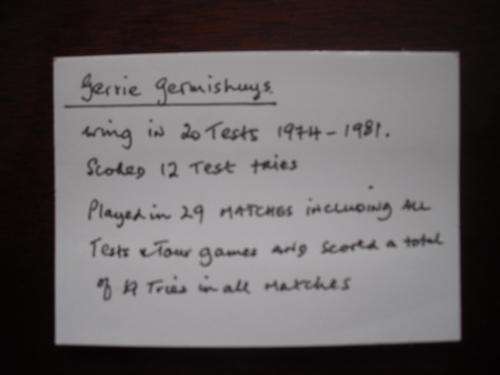 Gerrie Germishuys.
wing in 20 Tests 1974-1981.
Scored 12 Test tries
Played in 29 MATCHES including ALL
Tests & Tour games AND scored a total
of Tries in all matches